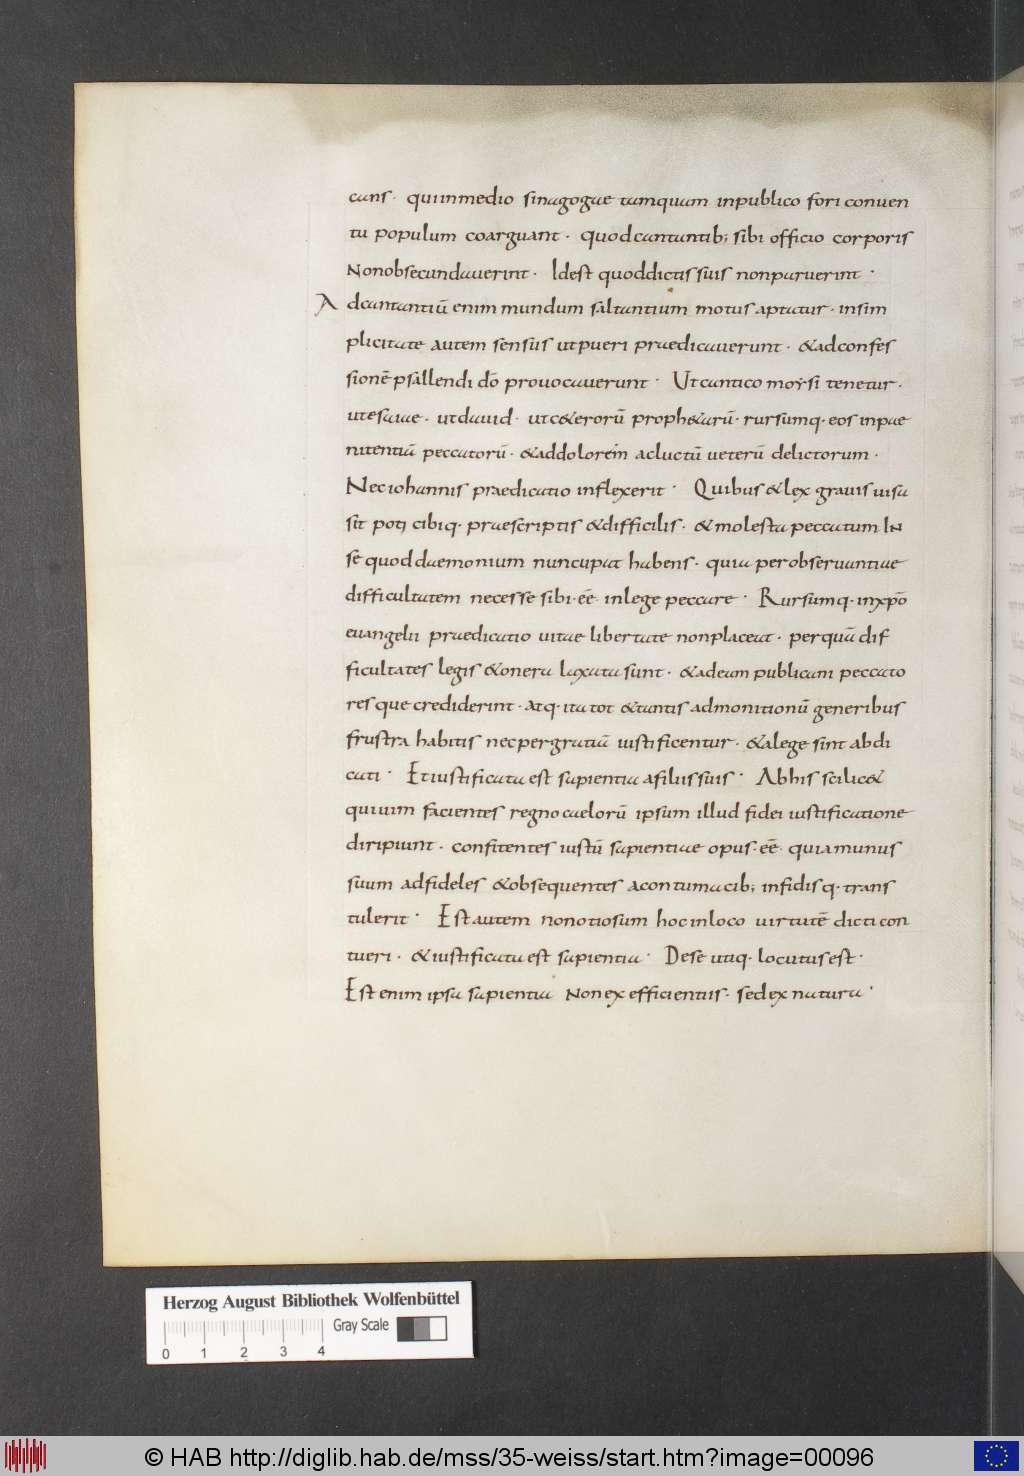 cans· quiinmedio sinagogae tamquam inpublico fori conuen
tu populum coarguant· quodcantantib; sibi officio corporis
Nonobsecundauerint· Idest quoddictis suis nonparuerint·
Adcantantiū enim mundum saltantium motus aptatur· insim
plicitate autem sensus utpueri praedicauerunt· &adconfes
sionē psallendi dō prouocauerunt· Utcantico moysi tenetur·
utesaiae· utdauid· utc&erorū proph&arū· rursumq· eos inpae
nitentiā peccatorū· &addolorem acluctū ueterū delictorum·
Neciohannis praedicatio inflexerit· Quibus &lex grauis uisa
sit poti cibiq· praescriptis &difficilis· &molesta peccatum IN
se quod daemonium nuncupat habens· quia perobseruantiae
difficultatem necesse sibi· eē· inlege peccare· Rursumq· inxpō
euangelii praedicatio uitae libertate nonplaceat· perquā dif
ficultates legis &onera laxata sunt· &adeam publicani peccato
res que crediderint· atq· ita tot &tantis admonitionū generibus
frustra habitis necpergratiā iustificentur· &alege sint abdi
cati· Etiustificata est sapientia afiliis suis· Abhis scilic&
quiuim facientes regnocaelorū ipsum illud fidei iustificatione
diripiunt· confitentes iustū sapientiae opus· eē· quiamunus
suum adfideles &obsequentes acontumacib; infidisq· trans
tulerit· Est autem nonotiosum hocinloco uirtutē dicti con
tueri· &iustificata est sapientia· Dese utiq· locutusest·
Est enim ipsa sapientia Nonexefficientiis· sedex natura·
Herzog August Bibliothek Wolfenbüttel
Gray Scale
0 1 2 3 4
© HAB http://diglib.hab.de/mss/35-weiss/start.htm?image=00096